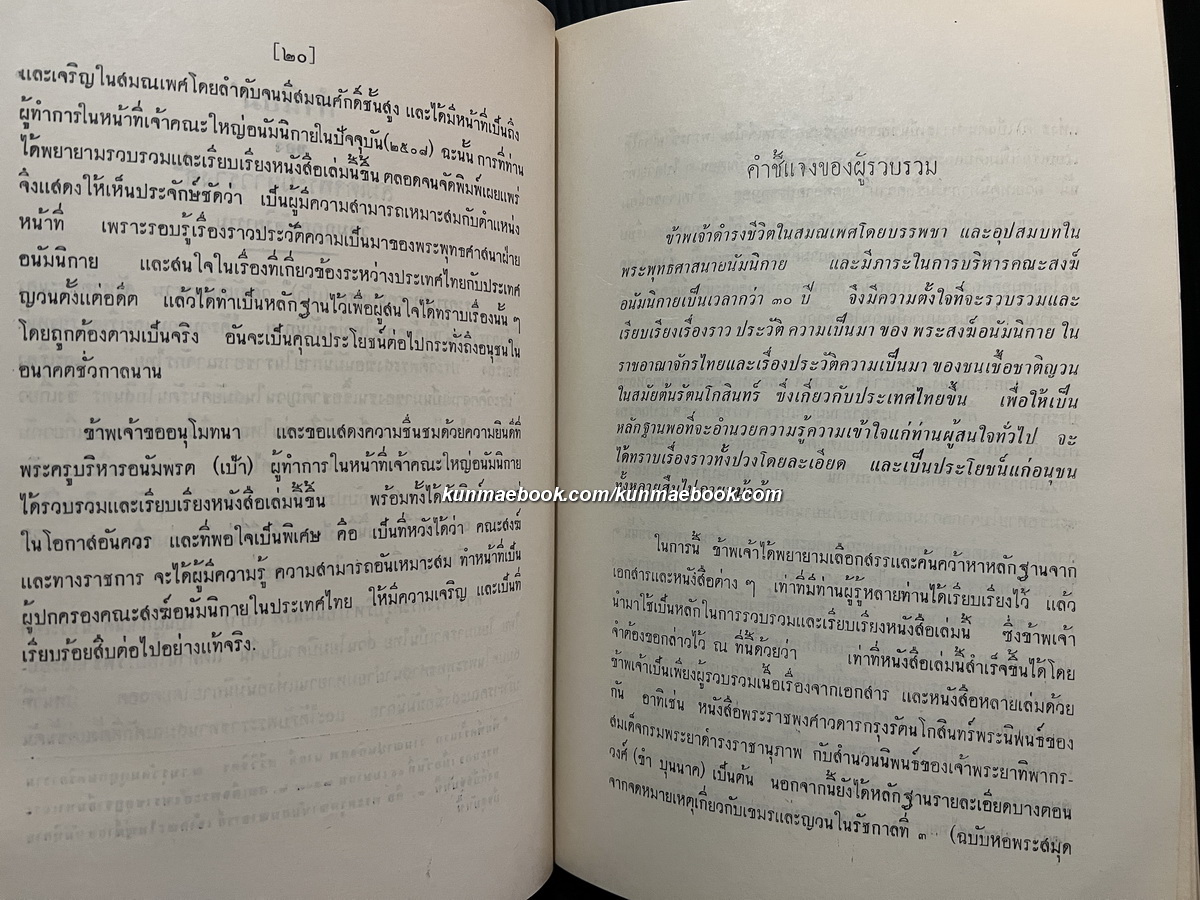 [๒๐]
และเจริญในสมณเพศโดยลำดับจนมีสมณศักดิ์ชั้นสูง และได้มีหน้าที่เป็นถึง
ผู้ทำการในหน้าที่เจ้าคณะใหญ่อนัมนิกายในปัจจุบัน(๒๕๐๘) ฉะนั้น การที่ท่าน
ได้พยายามรวบรวมและเรียบเรียงหนังสือเล่มนี้ขึ้น ตลอดจนจัดพิมพ์เผยแพร่
จึงแสดงให้เห็นประจักษ์ชัดว่า เป็นผู้มีความสามารถเหมาะสมกับตำแหน่ง
หน้าที่ เพราะรอบรู้เรื่องราวประวัติความเป็นมาของพระพุทธศาสนาฝ่าย
อนัมนิกาย และสนใจในเรื่องที่เกี่ยวข้องระหว่างประเทศไทยกับประเทศ
ญวนตั้งแต่อดีต แล้วได้ทำเป็นหลักฐานไว้เพื่อผู้สนใจได้ทราบเรื่องนั้น ๆ
โดยถูกต้องตามเป็นจริง อันจะเป็นคุณประโยชน์ต่อไปกระทั่งถึงอนุชนใน
อนาคตชั่วกาลนาน
ข้าพเจ้าขออนุโมทนา และขอแสดงความชื่นชมด้วยความยินดีที่
พระครูบริหารอนัมพรต (เป๊า) ผู้ทำการในหน้าที่เจ้าคณะใหญ่อนัมนิกาย
ได้รวบรวมและเรียบเรียงหนังสือเล่มนี้ขึ้น พร้อมทั้งได้
ในโอกาสอันควร และที่พอใจเป็นพิเศษ คือ เป็นที่หวังได้ว่า คณะสงฆ์
และทางราชการ จะได้ผู้มีความรู้ ความสามารถอันเหมาะสม ทำหน้าที่เป็น
ผู้ปกครองคณะสงฆ์อนัมนิกายในประเทศไทย ให้มีความเจริญ และเป็นที่
เรียบร้อยสืบต่อไปอย่างแท้จริง.
คำชี้แจงของผู้รวบรวม
ข้าพเจ้าดำรงชีวิตในสมณเพศโดยบรรพชา และอุปสมบทใน
พระพุทธศาสนายนัมนิกาย และมีภาระในการบริหารคณะสงฆ์
อนัมนิกายเป็นเวลากว่า ๓๐ ปี จึงมีความตั้งใจที่จะรวบรวมและ
เรียบเรียงเรื่องราว ประวัติ ความเป็นมา ของ พระสงฆ์อนัมนิกาย ใน
ราชอาณาจักรไทยและเรื่องประวัติความเป็นมา ของชนเชื้อชาติญวน
ในสมัยต้นรัตนโกสินทร์ ซึ่งเกี่ยวกับประเทศไทยขึ้น เพื่อให้เป็น
หลักฐานพอที่จะอำนวยความรู้ความเข้าใจแก่ท่านผู้สนใจทั่วไป จะ
ได้ทราบเรื่องราวทั้งปวงโดยละเอียด และเป็นประโยชน์แก่อนุชน
ทั้งหลายสืบไป
kunmaebook.com/kunmaebook.com
ในการนี้ ข้าพเจ้าได้พยายามเลือกสรรและค้นคว้าหาหลักฐานจาก
เอกสารและหนังสือต่าง ๆ เท่าที่มีท่านผู้รู้หลายท่านได้เรียบเรียงไว้ แล้ว
นำมาใช้เป็นหลักในการรวบรวมและเรียบเรียงหนังสือเล่มนี้ ซึ่งข้าพเจ้า
จำต้องขอกล่าวไว้ ณ ที่นี้ด้วยว่า เท่าที่หนังสือเล่มนี้สำเร็จขึ้นได้โดย
ข้าพเจ้าเป็นเพียงผู้รวบรวมเนื้อเรื่องจากเอกสาร และหนังสือหลายเล่มด้วย
กัน อาทิเช่น หนังสือพระราชพงศาวดารกรุงรัตนโกสินทร์พระนิพนธ์ของ
สมเด็จกรมพระยาดำรงราชานุภาพ กับสำนวนนิพนธ์ของเจ้าพระยาทิพากร-
วงศ์ (ขำ บุนนาค) เป็นต้น นอกจากนี้ยังได้หลักฐานรายละเอียดบางตอน
จากจดหมายเหตุเกี่ยวกับเขมรและญวนในรัชกาลที่ ๓ (ฉบับหอพระสมุด